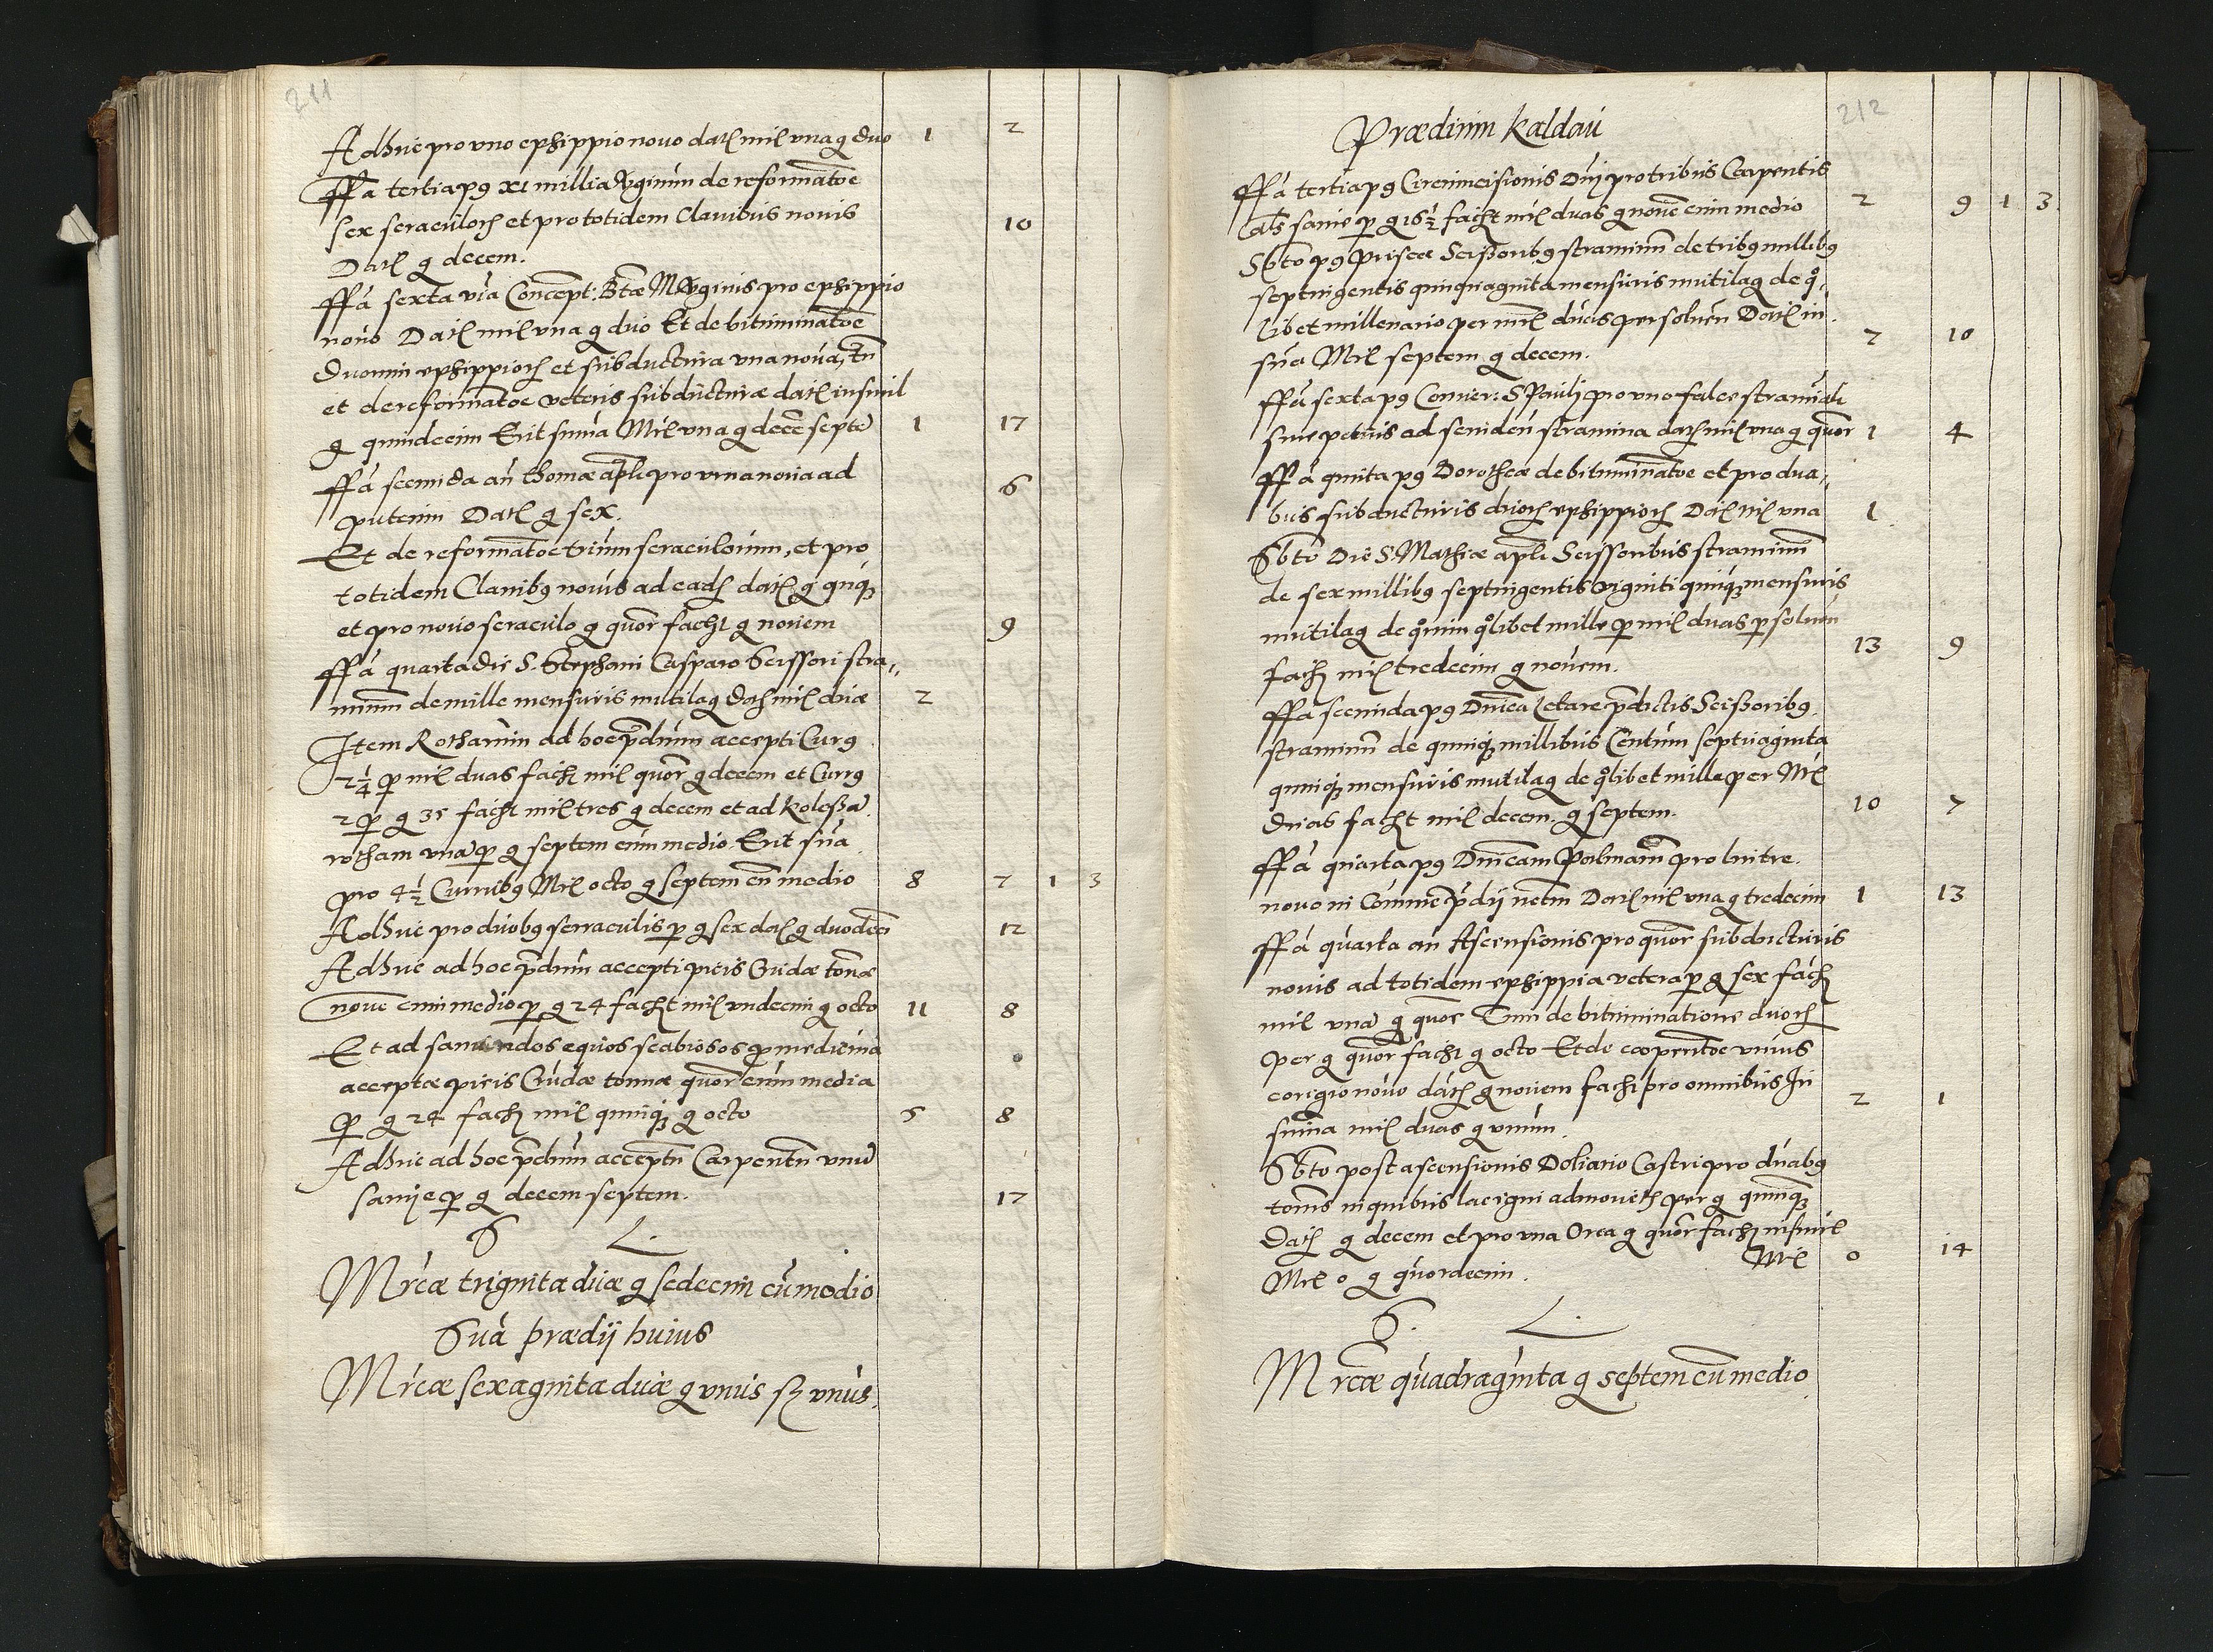 211
Adhuc pro vno ephippio novo datɫ miɫ vna g duo 1 2
ffa tertia pg XI millia Virginum de reformatōe
sex seraculorꝭ et pro totidem Clavibus novis 10
Datɫ g decem.
ffa sexta via Concept: Btæ M Virginis pro ephippio
novo Datɫ miɫ vna g duo Et de bituminatōe
duorum ephippiorꝭ et subductura vna nova,
et de reformatōe veteris subducturæ datɫ insimul
g quindecim Erit suma Mrɫ vna g decē septē 1 17
ffa secunda an Thomæ apli pro vrna nova ad 6
puteum Datɫ g sex.
Et de reformatōe trium seraculorum, et pro
totidem Clavibꝯ novis ad eadꝭ datɫ g qnqꝫ
et pro novo seraculo g quor facht g novem 9
ffa quarta die S. Stephani Casparo Scissori stra„
minum de mille mensuris mutilaqꝫ datꝭ miɫ duæ 2
Item Rothamm ad hoc pdium accepti Curꝯ
2¼ ꝑ miɫ duas facht miɫ quor g decem et Curꝯ
2 ꝑ g 35 facht miɫ tres g decem et ad Koleßā
rotham vnā ꝑ g septem cum medio Erit suma
pro 4½ Curribꝯ Mrɫ octo g septem cū medio 8 7 1 3
Adhuc pro duobꝯ serraculis ꝑ g sex datɫ g duodeci 12
Adhuc ad hoc pdium accepti picis Crudæ tonæ
novē cum medio ꝑ g 24 facht miɫ vndecim g octo 11 8
Et ad sanandos equos scabiosos ꝑ medicina
acceptæ picis Crudæ tonnæ quor cum media
ꝑ g 24 fachꝭ miɫ quinqꝫ g octo 5 8
Adhuc ad hoc pdium acceptū Carpentū vnū
samie ꝑ g decem septem. 17
S L.
Mrcæ triginta duæ g sedecim cū medio
Suma prædij huius
Mrcæ sexaginta duæ g vnus ß vnus.
212
Prædium Kaldau
ffa tertia pg Circumcisionis Dni pro tribus Carpentis
als samie ꝑ g 16½ facht miɫ duas g novē cum medio 2 9 1 3
Sbto pg Priscæ Scißoribꝯ straminū de tribꝯ millibꝯ
septingentis quinquaginta mensuris mutilaqꝫ de qo„
libet millenario per mrɫ duas persoluen Datɫ in
suma Mrɫ septem g decem. 7 10
ffa sexta pg Conuer: S Pauli pro vno falce straminali
siue petuis ad scinden stramina datꝭ miɫ vna g quor 1 4
ffa quinta pg Dorotheæ de bituminatōe et pro dua„
bus subducturis duorꝭ ephippiorꝭ Datɫ miɫ vna 1
Sbto Die S. Mathiæ apli Scissoribus straminū
de sex millibꝯ septingentis viginti quinqꝫ mensuris
mutilaqꝫ de qorum qolibet mille ꝑ miɫ duas ꝑsoluen
fachꝭ miɫ tredecim g novem. 13 9
ffa secunda pg Dnica Letare pdictis Scißoribꝯ
straminū de quinqꝫ millibus Centum septuaginta
quinqꝫ mensuris mutilaqꝫ de qolibet mille per Mrɫ
duas facht miɫ decem. g septem. 10 7
ffa quarta pg Dnicam Palmarū pro lintre
novo in Commē pdij Datɫ miɫ vna g tredecim 1 13
ffa quarta an Ascensionis pro quor subducturis
novis ad totidem ephippia vetera ꝑ g sex fachꝭ
miɫ vnā g quor Tum de bituminatione duorꝭ
per g quor facht g octo Et de coopertoe vnius
corigio novo datꝭ g novem facht pro omnibus In
suma miɫ duas g vnum. 2 1
Sbto post ascensionis Doliario Castri pro duabꝯ
tonis in quibus lac igni admovetꝭ per g quinqꝫ
Datꝭ g decem et pro vna Orca g quor fachꝭ insimɫ
Mrɫ o g quordecim. Mrɫ 0 14
S. L.
Mrcæ quadraginta g septem cū medio.